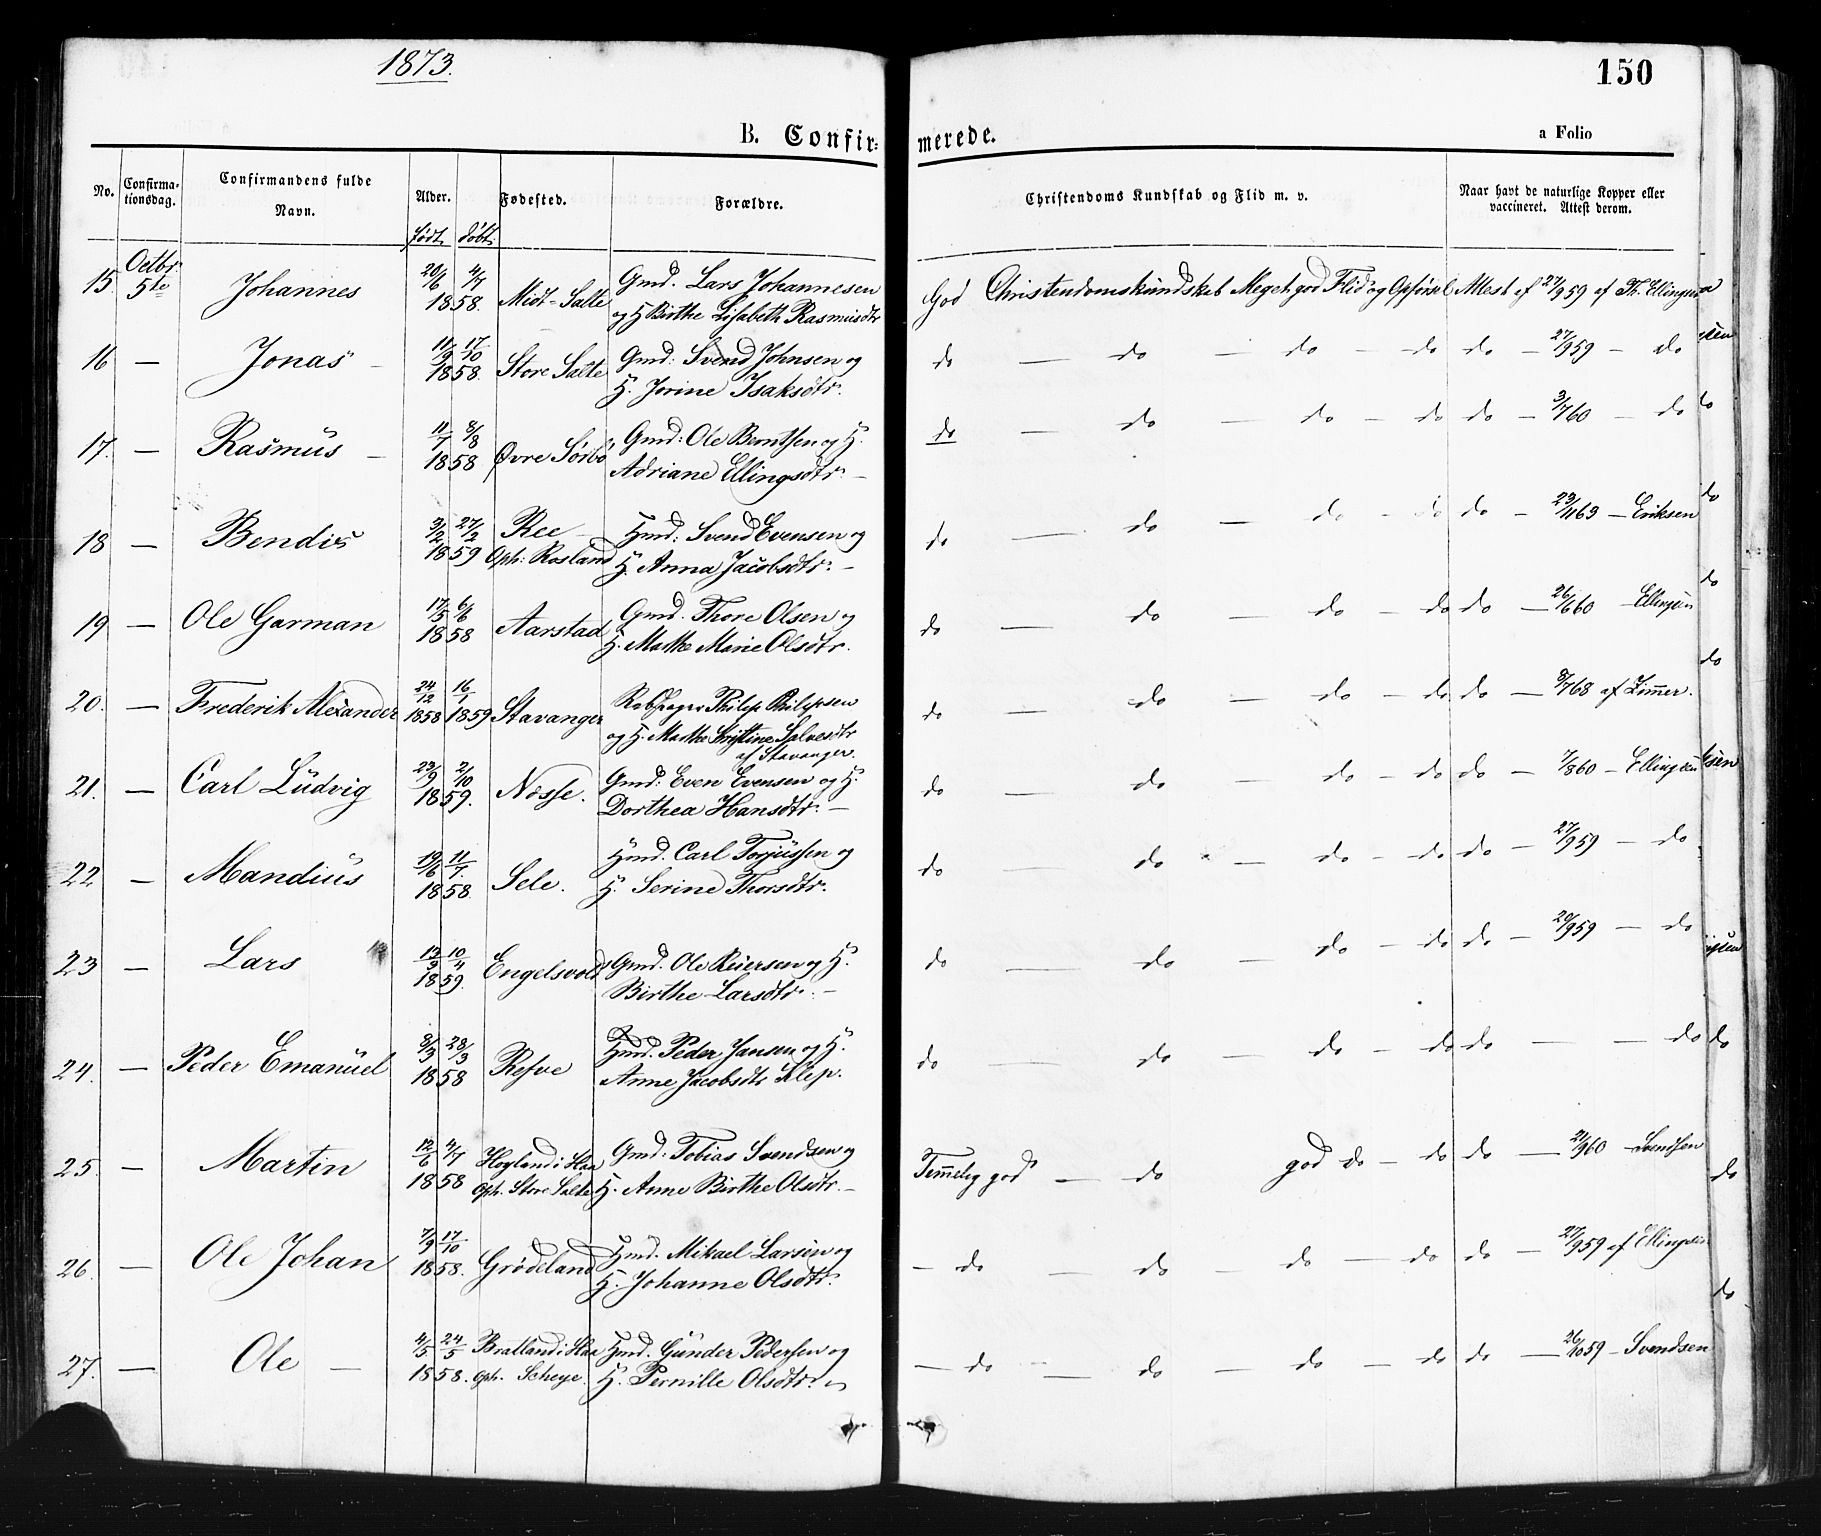 1873.
150
B. Confir=
merede.
a Folio
No.
Confirma-
tionsdag.
Confirmandens fulde
Navn.
Alder.
født. døbt.
Fødested.
Forældre.
Christendoms Kundskab og Flid m. v.
Naar havt de naturlige Kopper eller
vaccineret. Attest derom.
15. Octbr 5te Johannes 20/6 4/7 Gmd. Lars Johannesen God Christendomskundskab Meget god Flid og Opførsel Attest af 27/9 59 af Th. Ellingsen
1858. Midt-Salte og H Birthe Lisabeth Rasmusdtr
16 — Jonas — 11/9 17/10 Store Salte Gmd: Svend Johnsen og do — do — do — do do — 27/9 59 — do
1858. H. Jorine Isaksdtr.
17. — Rasmus — 11/7 8/8 Øvre Sørbø Gmd: Ole Berntsen og H. do — do — do — do do — 3/7 60 — do
1858 Adriane Ellingsdtr. —
18 — Bendix 3/2 27/2 Ree — Hmd: Svend Evensen og do — do — do — do do — 23/11 63 — Eriksen
1859 Oph: Rosland H. Anna Jacobsdtr. —
19 — Ole Garman 17/5 6/6 Aarstad Gmd. Thore Olsen og do — do — do — do do — 26/6 60 — Ellingsen
1858 H. Marthe Marie Olsdtr.
20. — Frederik Alexander 24/12 16/1 Stavanger Philip Philipsen do — do — do — do do — 8/7 68 af Zimmer.
1858 1859 og H. Marthe Kristine Salvesdtr
af Stavanger.
21. — Carl Ludvig 23/9 2/10 Næsse. Gmd: Even Evensen og H. do — do — do — do do — 7/8 60 — Ellingsen
1859. Dorthea Hansdtr. —
22 — Mandius 19/6 11/7. Sele. Hmd. Carl Torjussen og do — do — do — do do — 27/9 59 — do
1858 H. Serine Thorsdtr.
23 — Lars 12/3 10/4 Engelsvold Gmd. Ole Reiersen og H. do — do — do — do do — 20/9 59 — do
1859. Birthe Larsdtr. —
24. — Peder Emanuel 8/3 28/3 Refve Hmd. Peder Jansen og H. do — do — do — do do — — do
1858 Anne Jacobsdtr Klep.
25. — Martin 12/6 4/7 Høyland i Haa Gmd: Tobias Svendsen og Temmelig god — do god do — do do — 21/9 60 — Svendsen
1858 Oph. Store Salte H. Anne Birthe Olsdtr. —
26. — Ole Johan 7/9 17/10 Grødeland Hmd. Mikael Larsen og — do — do — do — do do — 27/9 59 af Ellingsen
1858. H. Johanne Olsdtr.
27. — Ole — 4/5 24/5 Bratland i Haa Hmd. Gunder Pedersen og — do — do — do — do do — 26/10 59 — Svendsen
1858. oph. Scheye. H. Pernille Olsdtr.